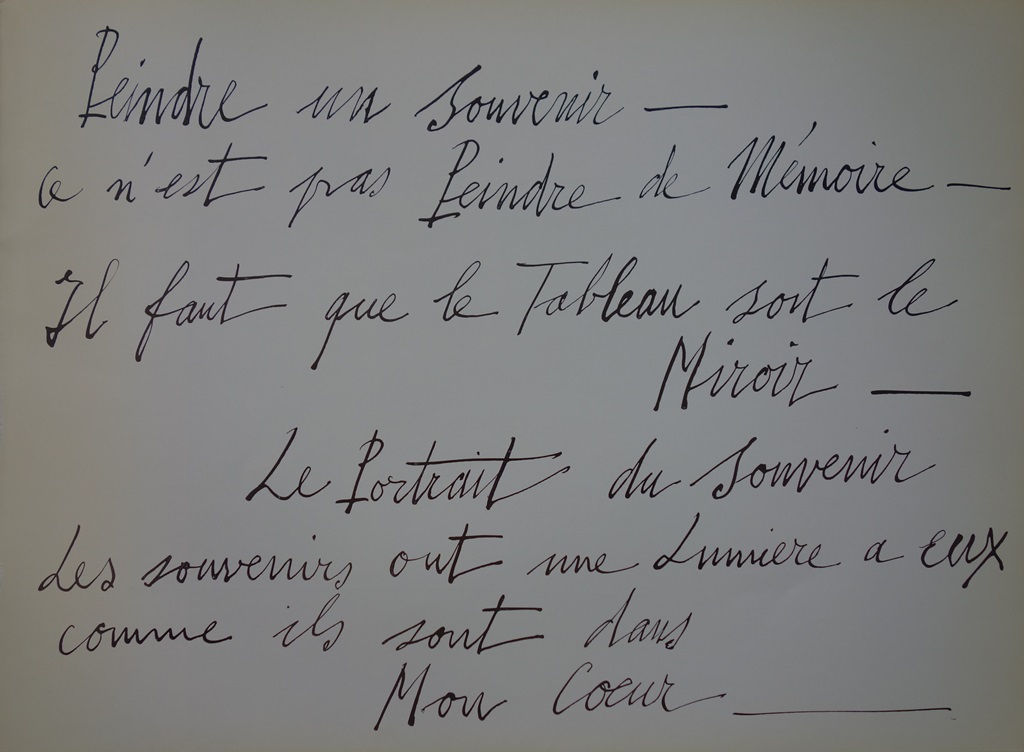 Peindre un souvenir —
ce n'est pas Peindre de Mémoire —
Il faut que le Tableau soit le
Miroir —
Le Portrait du souvenir
Les souvenirs ont une Lumière a eux
comme ils sont dans
Mon Coeur —